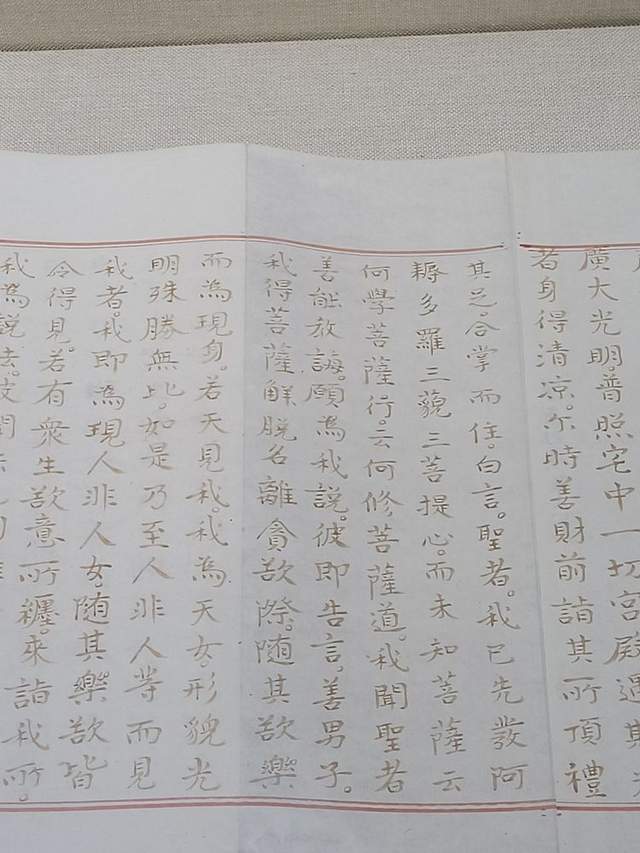 廣大光明。普照宅中一切宮殿遇其光
者身得清凉。尒時善財前詣其所頂禮
其足。合掌而住。白言。聖者。我已先發阿
耨多羅三藐三菩提心。而未知菩薩云
何學菩薩行。云何修菩薩道。我聞聖者
善能教誨。願為我說。彼即告言。善男子。
我得菩薩解脫名離貪欲際。隨其欲樂
而為現身。若天見我。我為天女。形貌光
明殊勝無比。如是乃至人非人等而見
我者。我即為現人非人女。隨其樂欲皆
令得見。若有衆生欲意所纏。來詣我所。
我為說法。彼聞